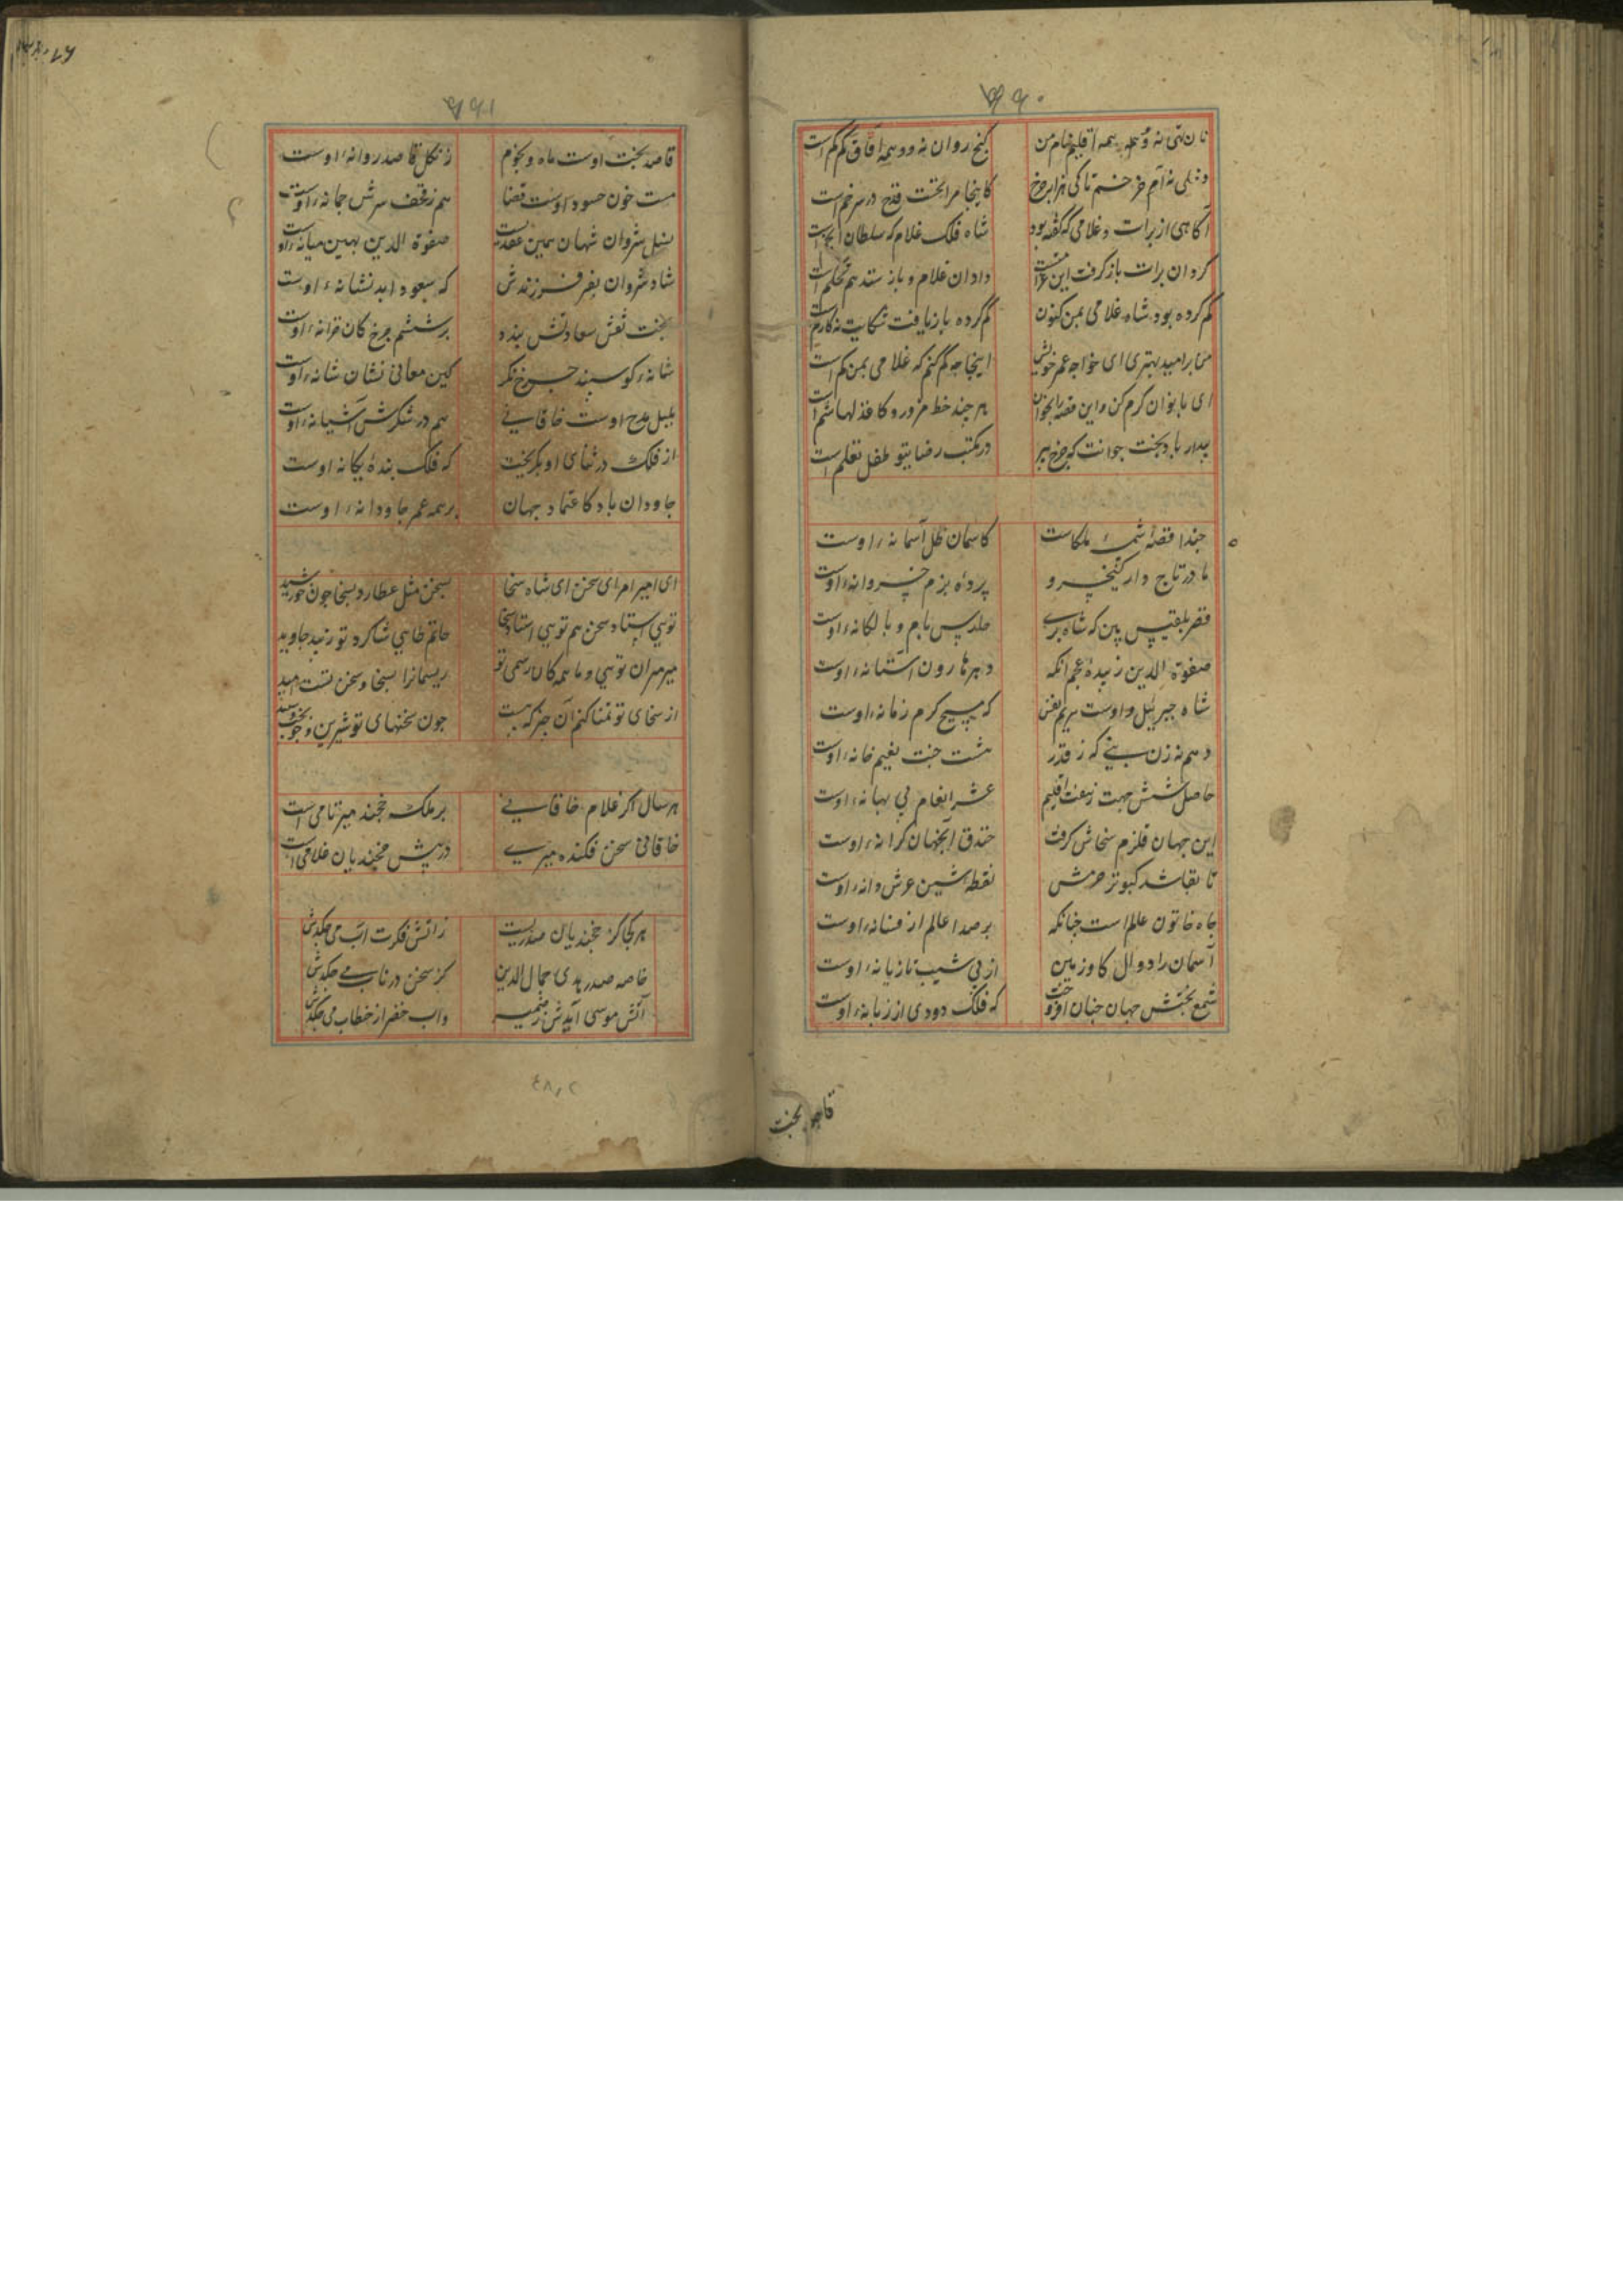 ۷۶۰
نان تهی نه و همه اقلیم نام من
گنج روان نه و همه آفاق گم گم است
کاینجا مرا نخست قدح درسر خم است
آگاهی از برات و غلامی که گفته بود
شاه فلک غلام که سلطان انجم است
کرد آن برات باز گرفت این
داد آن غلام و باز ستد هم تحکم است
گم کرده بود شاه غلامی بمن کنون
گم کرده باز یافت شکایت نه کارم است
من بر امید بهتری ای خواجه عمر خویش
اینجا چه گم کنم که غلامی بمن کم است
ای بابوان کرم کن و این قصه را بخوان
هر چند خط مزور و کاغذ لهاشم است
بیدار باد بخت جوانت که چرخ پیر
در مکتب رضا بتو طفل تعلم است
حبذا قصه شمسه ملکات
کاسمان ظل آسمانه اوست
مادر تاج دار کیخسرو
پرده بزم خسروانه اوست
قصر بلقیس بین که شاه پری
حارس بام و بالکانه اوست
صفوة الدین زبیده عجم آنکه
دهر هارون آستانه اوست
شاه جبریل و اوست مریم نفس
که مسیح کرم زمانه اوست
دهم نه زن نبی که ز قدر
هشت جنت نعیم خانه اوست
حاصل شش جهت ز هفت اقلیم
عشر انعام بی بهانه اوست
این جهان قلزم سخاش گرفت
خندق آنجهان کرانه اوست
تا بقا شد کبوتر حرمش
نقطه شین عرش دانه اوست
جاه خاتون عالم است چنانکه
بر صدا عالم از فسانه اوست
آسمان را دوال گاو زمین
از پی شیب تازیانه اوست
شمع بختش جهان چنان افروخت
که فلک دودی از زبانه اوست
قاصد بخت
۷۶۱
قاصد بخت اوست ماه و نجوم
زنگل قاصد روانه اوست
مست خون حسود اوست قضا
هم ز قحف سرش چمانه اوست
نسل شروان شهان مهین عقدیست
صفوة الدین بهین میانه اوست
شاد شروان بفر فرزندش
که سعود ابد نشانه اوست
بخت نعش سعادتش بنده
بر ششم چرخ کان قرانه اوست
شانه کوسپند چرخ نگر
کین معانی نشان شانه اوست
بلبل مدح اوست خاقانی
هم در شکرش آشیانه اوست
از فلک در ثنای او بگریخت
که فلک بنده یگانه اوست
جاودان باد کاعتماد جهان
بر همه عمر جاودانه اوست
ای امیر امرای سخن ای شاه سخا
بسخن مثل عطارد بسخا چون خورشید
تویی استاد سخن هم تویی استاد سخا
حاتم طایی شاگرد تو زیبد جاوید
میر میران تویی و ما همگان رسمی تو
ریسمانرا بسخا و سخن تست امید
از سخای تو تمنا کنم آن چیز که هست
چون سخنهای تو شیرین و چو بختت سپید
هر سال اگر غلام خاقانی
بر ملک خجند میر تامی است
خاقانی سخن فکنده میری
در پیش خجندیان غلامی است
هر کجا کز خجندیان صدریست
ز آتش فکرت آب می چکدش
خاصه صدر هدی جمال الدین
کز سخن در ناب می چکدش
آتش موسی آیدش ز ضمیر
واب خضر از خطاب می چکدش